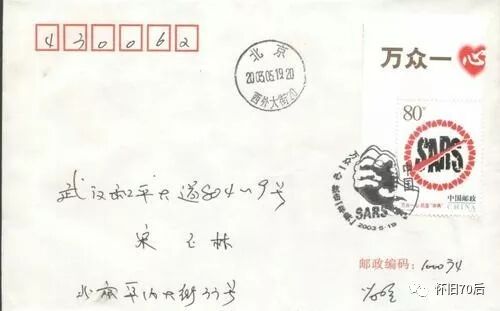 430062
万众一心
北京
2003.05.19.20
西外大街20
80分
SARS
中国邮政
CHINA
万众一心
SARS
2003-5-19
武汉和平大道804-9号
宋玉林
邮政编码：100034
北京平内大街33号
怀旧70后